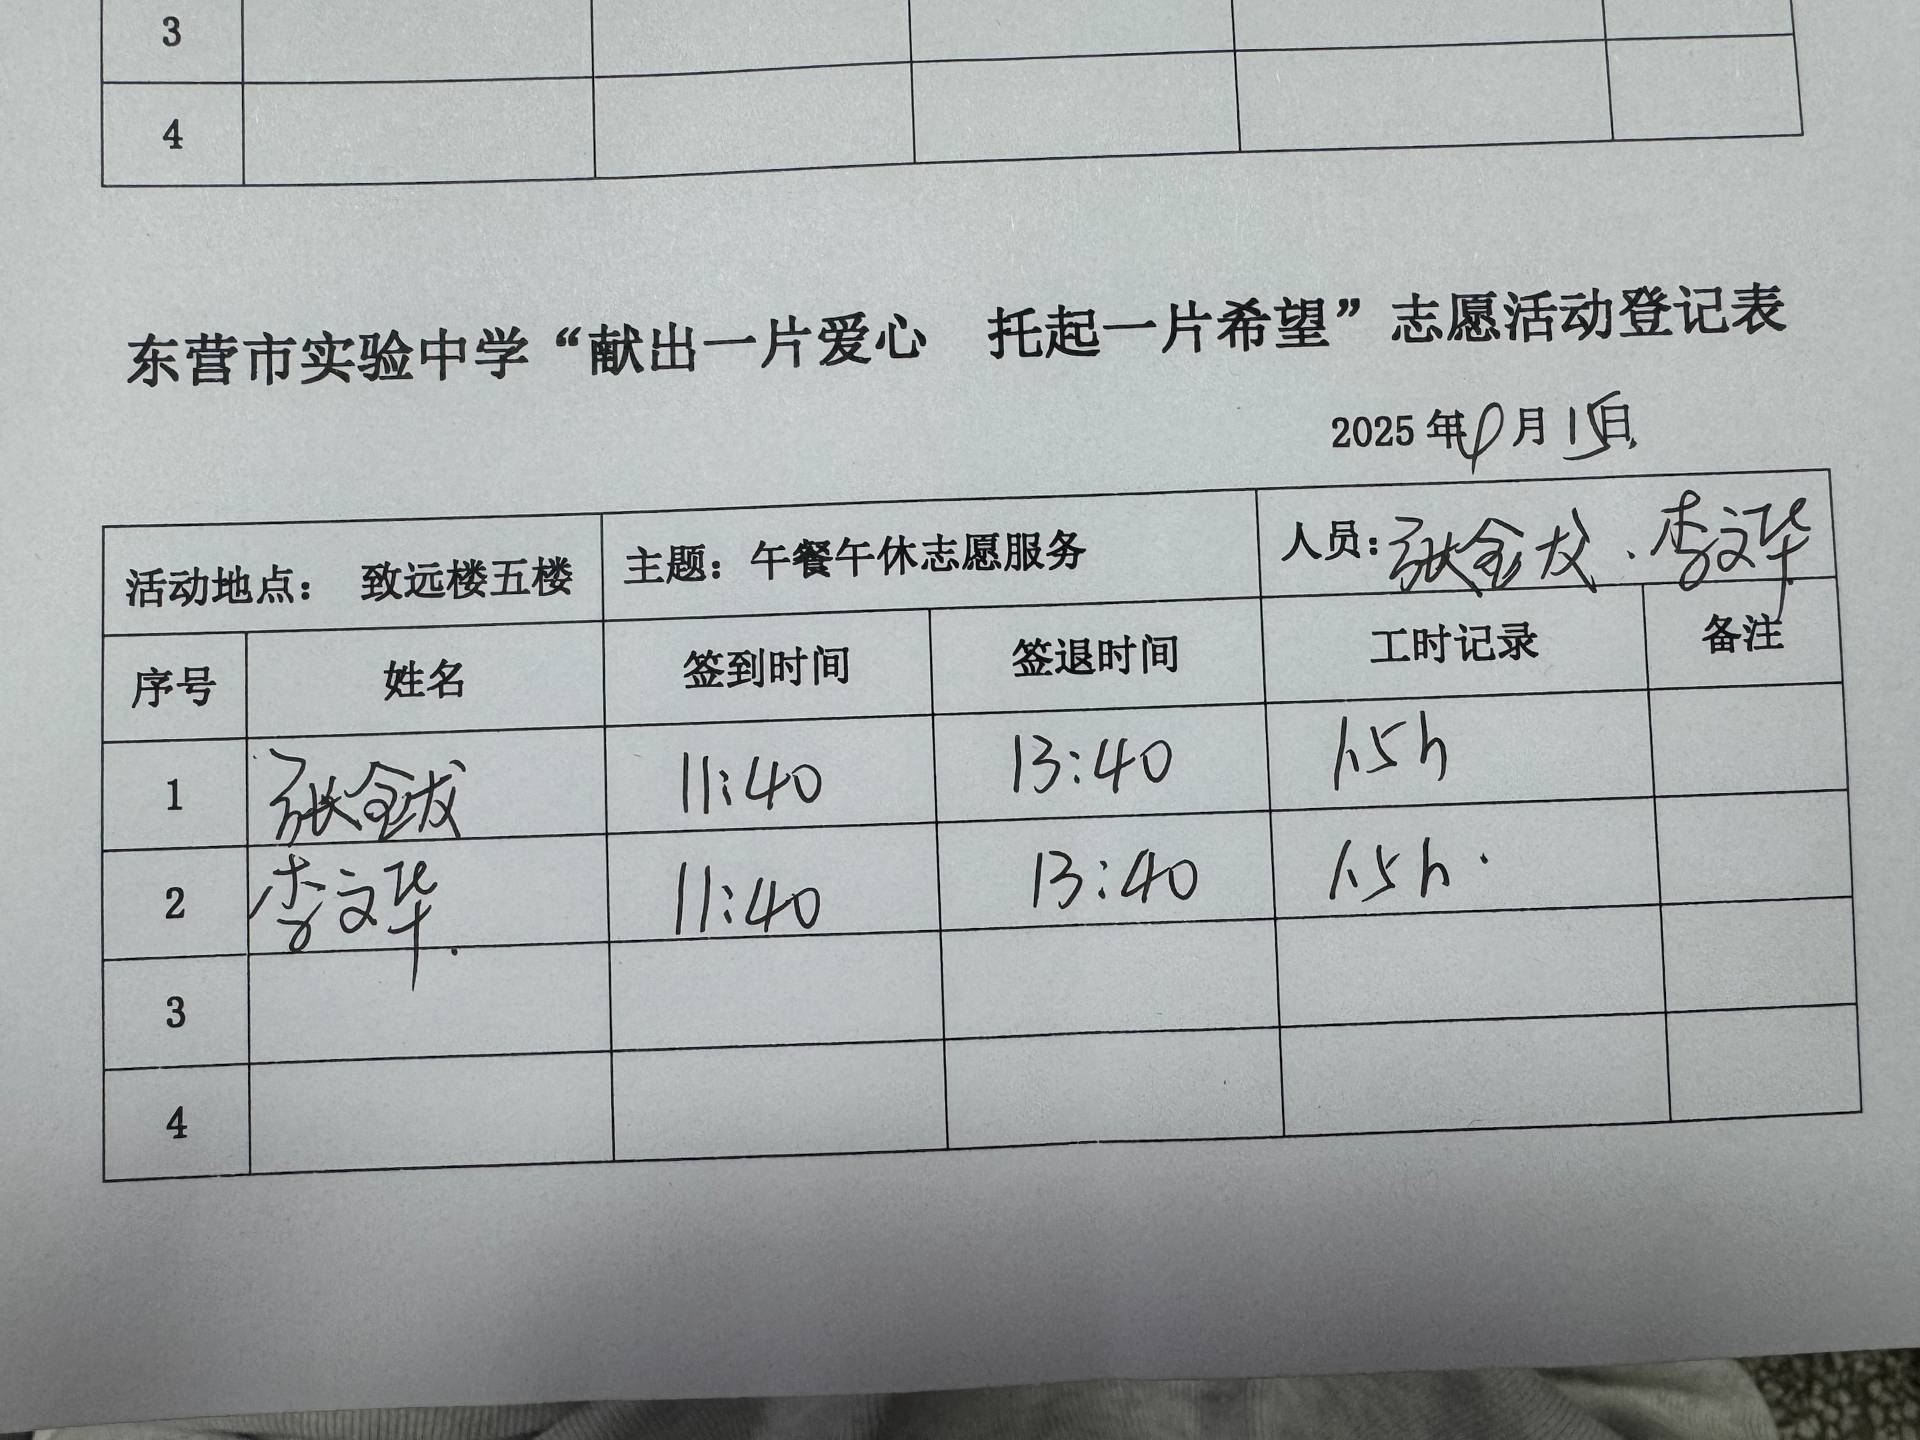 3
4
东营市实验中学“献出一片爱心 托起一片希望”志愿活动登记表
2025年9月15日
活动地点: 致远楼五楼 主题: 午餐午休志愿服务 人员: 张金龙、李文华
序号 姓名 签到时间 签退时间 工时记录 备注
1 张金龙 11:40 13:40 1.5h
2 李文华 11:40 13:40 1.5h
3
4